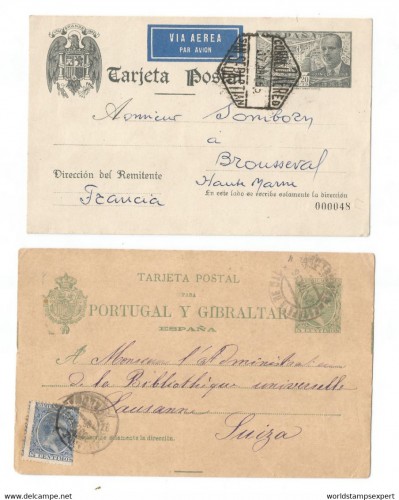 VIA AEREA
PAR AVION
ESPAÑA
Tarjeta Postal
CORREO AEREO
Monsieur Sombory
à
Brousseval
Haute Marne
Dirección del Remitente
En este lado se escribe solamente la dirección
Francia
000048
TARJETA POSTAL
PARA
PORTUGAL Y GIBRALTAR
ESPAÑA
A Monsieur l'Administrateur
de la Bibliothèque universelle
Lausanne
Suiza
solamente la dirección.
https://www.worldstampsexpert.com